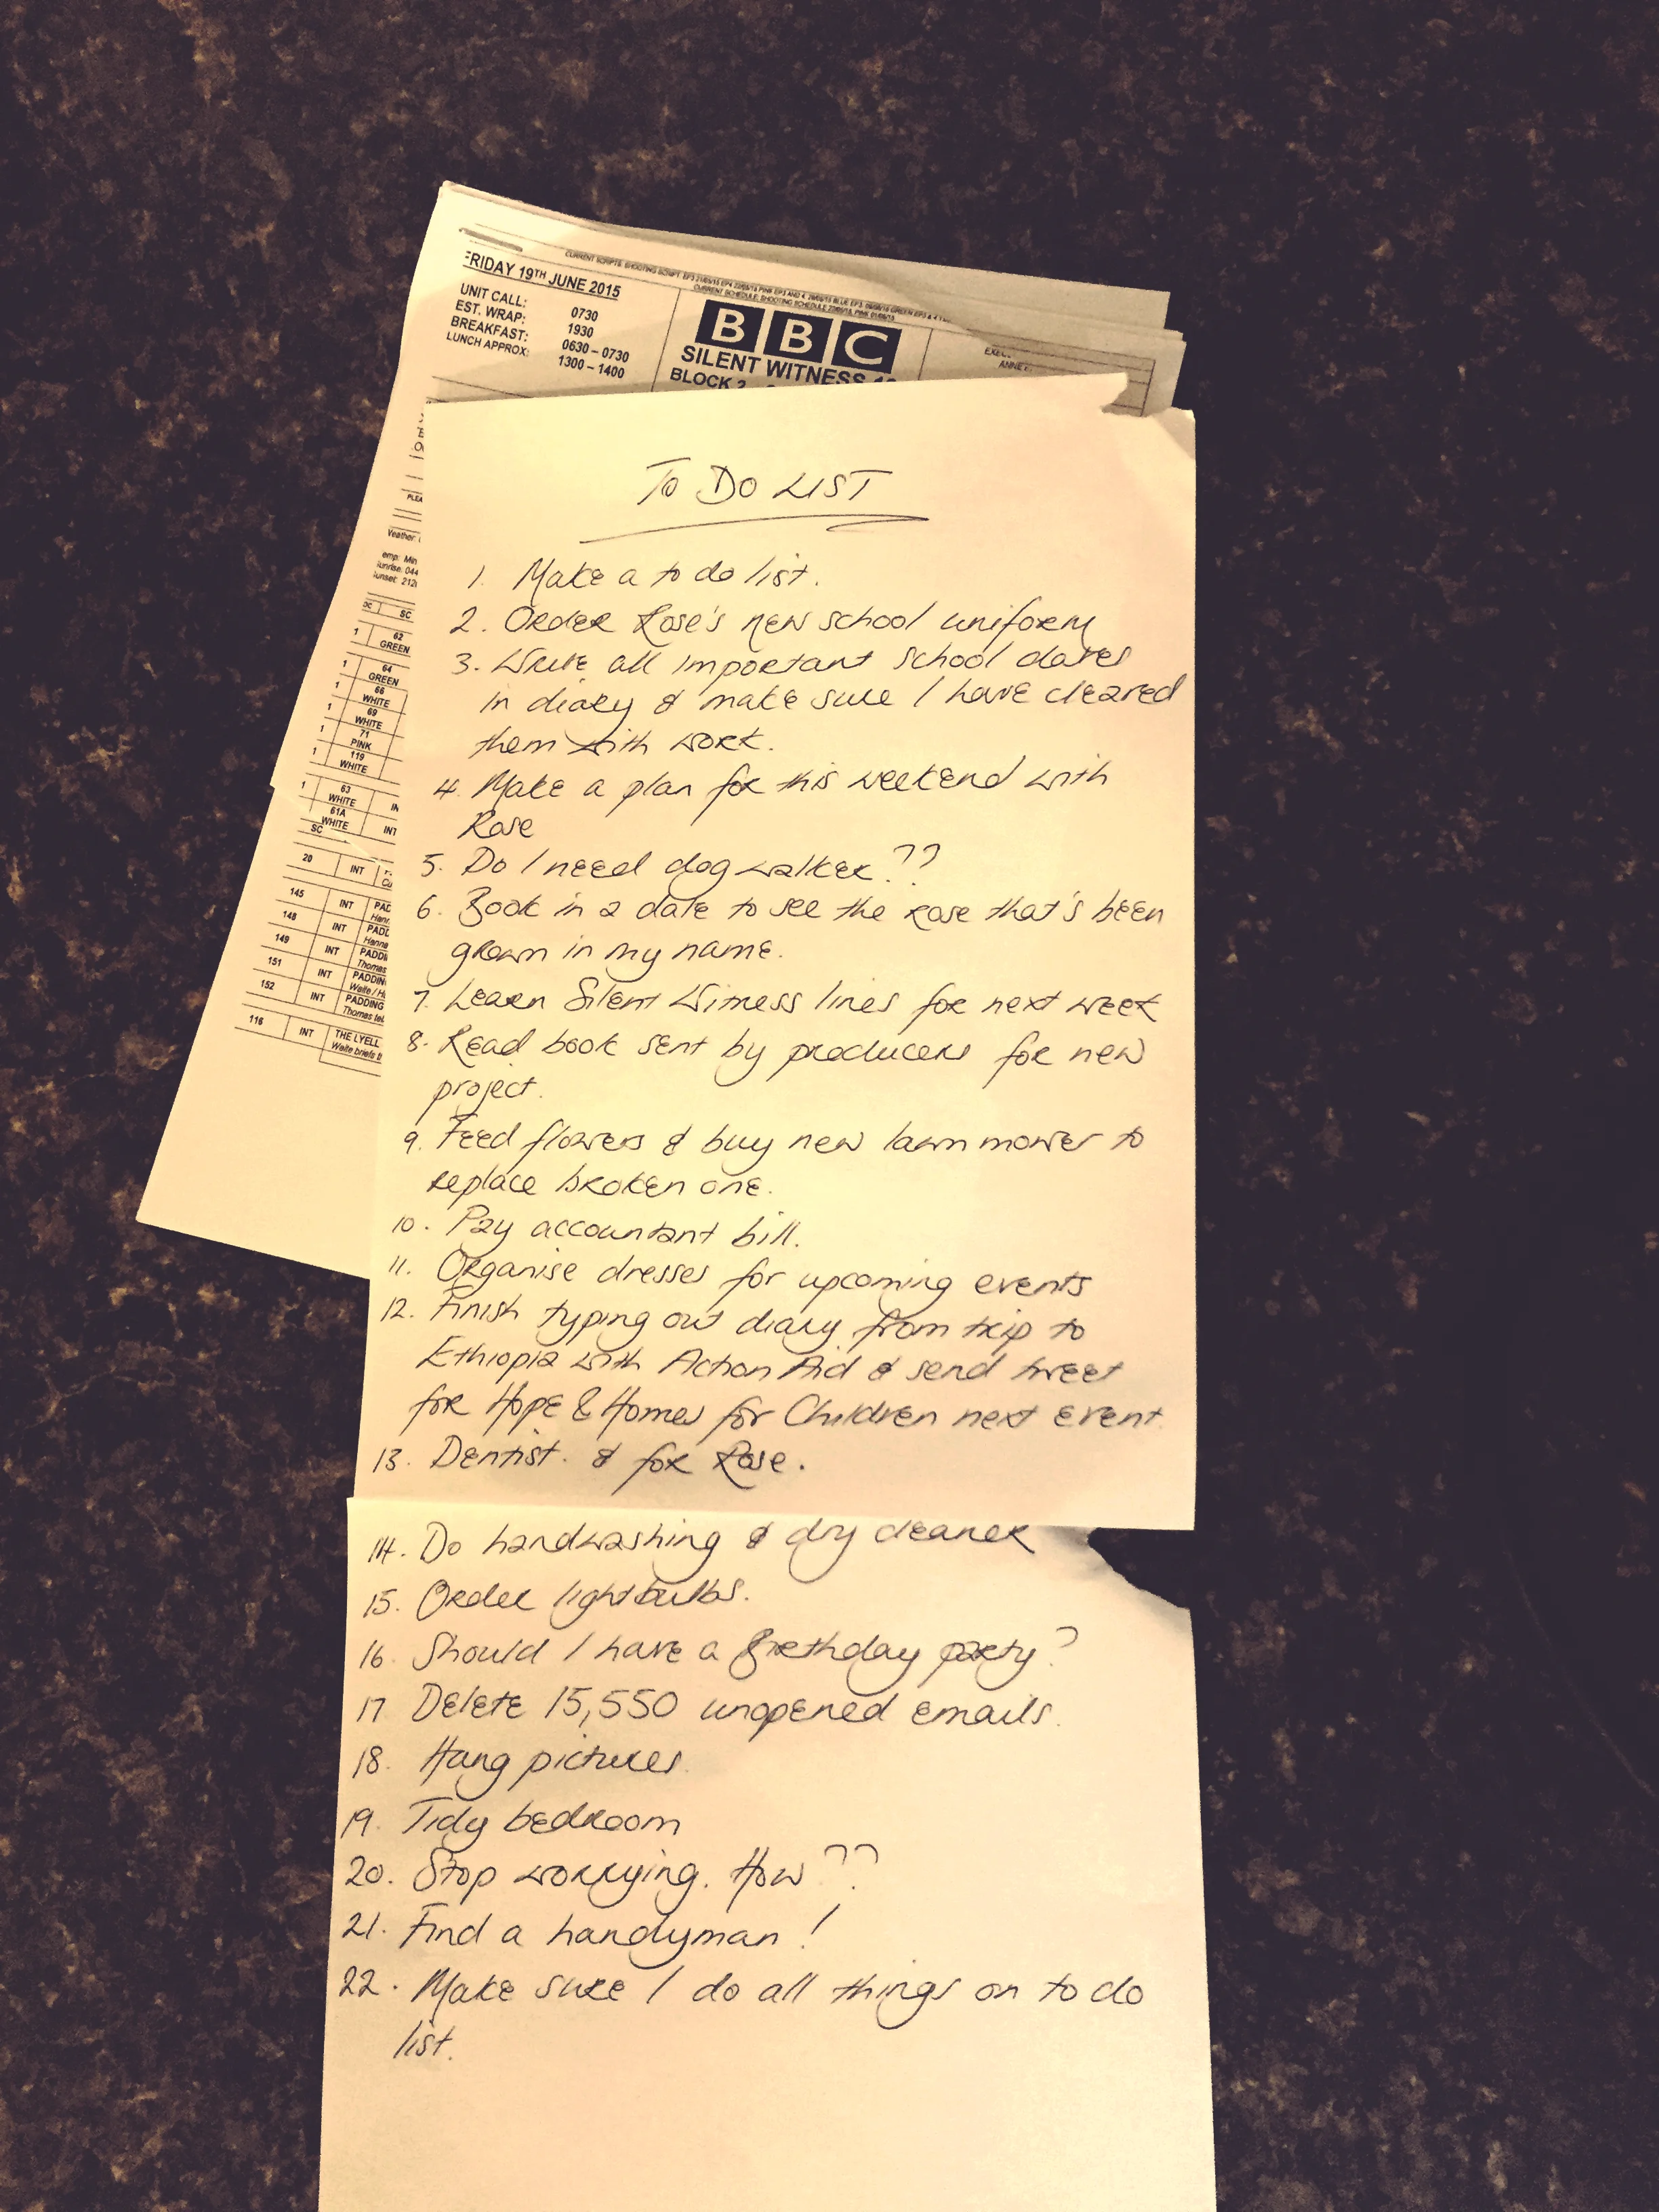 FRIDAY 19TH JUNE 2015
UNIT CALL: 0730
EST. WRAP: 1930
BREAKFAST: 0630 – 0730
LUNCH APPROX: 1300 – 1400
BBC
SILENT WITNESS
BLOCK 2
62
GREEN
64
GREEN
66
WHITE
69
WHITE
71
PINK
119
WHITE
63
WHITE
61A
WHITE
SC
20 INT
145 INT
148 INT
149 INT
151 INT
152 INT PADDING
116 INT THE LYELL
TO DO LIST
1. Make a to do list.
2. Order Rose's new school uniform
3. Write all important school dates
in diary & make sure I have cleared
them with work.
4. Make a plan for this weekend with
Rose
5. Do I need dog walker??
6. Book in a date to see the rose that's been
grown in my name.
7. Learn Silent Witness lines for next week
8. Read book sent by producers for new
project.
9. Feed flowers & buy new lawn mower to
replace broken one.
10. Pay accountant bill.
11. Organise dresses for upcoming events
12. Finish typing out diary from trip to
Ethiopia with Action Aid & send tweet
for Hope & Homes for Children next event.
13. Dentist. & for Rose.
14. Do handwashing & dry cleaner
15. Order lightbulbs.
16. Should I have a Birthday party?
17 Delete 15,550 unopened emails.
18. Hang pictures.
19. Tidy bedroom
20. Stop worrying. How??
21. Find a handyman!
22. Make sure I do all things on to do
list.